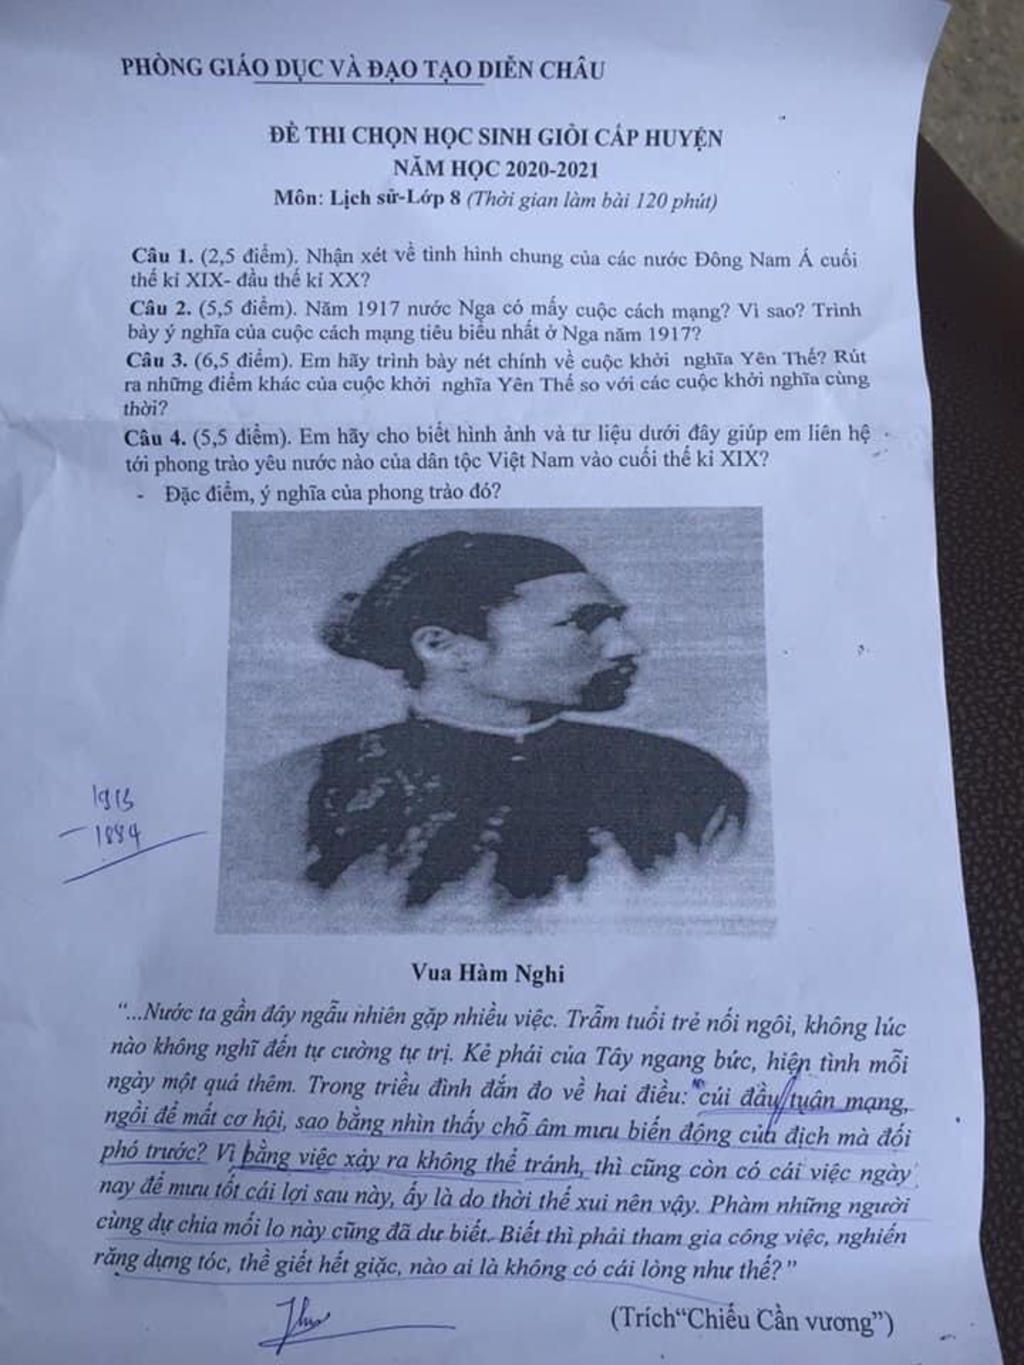 PHÒNG GIÁO DỤC VÀ ĐẠO TẠO DIỄN CHÂU
ĐỀ THI CHỌN HỌC SINH GIỎI CẤP HUYỆN
NĂM HỌC 2020-2021
Môn: Lịch sử-Lớp 8 (Thời gian làm bài 120 phút)
Câu 1. (2,5 điểm). Nhận xét về tình hình chung của các nước Đông Nam Á cuối
thế kỉ XIX- đầu thế kỉ XX?
Câu 2. (5,5 điểm). Năm 1917 nước Nga có mấy cuộc cách mạng? Vì sao? Trình
bày ý nghĩa của cuộc cách mạng tiêu biểu nhất ở Nga năm 1917?
Câu 3. (6,5 điểm). Em hãy trình bày nét chính về cuộc khởi nghĩa Yên Thế? Rút
ra những điểm khác của cuộc khởi nghĩa Yên Thế so với các cuộc khởi nghĩa cùng
thời?
Câu 4. (5,5 điểm). Em hãy cho biết hình ảnh và tư liệu dưới đây giúp em liên hệ
tới phong trào yêu nước nào của dân tộc Việt Nam vào cuối thế kỉ XIX?
- Đặc điểm, ý nghĩa của phong trào đó?
1913
- 1884
Vua Hàm Nghi
“...Nước ta gần đây ngẫu nhiên gặp nhiều việc. Trẫm tuổi trẻ nối ngôi, không lúc
nào không nghĩ đến tự cường tự trị. Kẻ phái của Tây ngang bức, hiện tình mỗi
ngày một quá thêm. Trong triều đình đắn đo về hai điều: cúi đầu tuân mạng,
ngồi để mất cơ hội, sao bằng nhìn thấy chỗ âm mưu biến động của địch mà đối
phó trước? Vì bằng việc xảy ra không thể tránh, thì cũng còn có cái việc ngày
nay để mưu tốt cái lợi sau này, ấy là do thời thế xui nên vậy. Phàm những người
cùng dự chia mối lo này cũng đã dư biết. Biết thì phải tham gia công việc, nghiến
răng dựng tóc, thề giết hết giặc, nào ai là không có cái lòng như thế?”
(Trích“Chiếu Cần vương”)